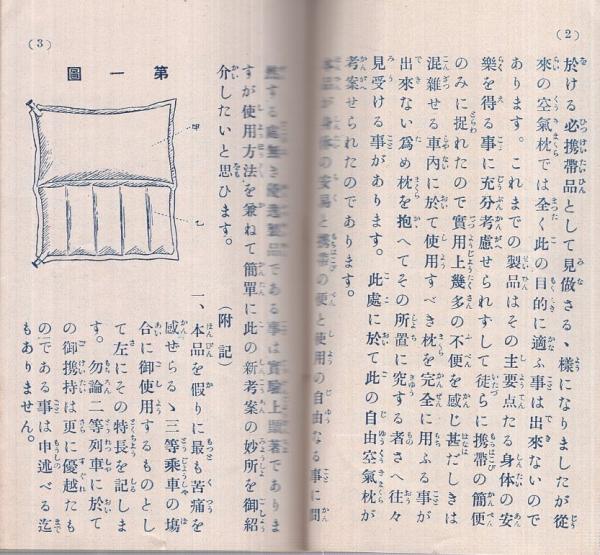 (2)
於ける必携帶品として見做さるゝ樣になりましたが從
來の空氣枕では全く此の目的に適ふ事は出來ないので
あります。これまでの製品はその主要点たる身体の安
樂を得る事に充分考慮せられずして徒らに携帶の簡便
のみに捉れたので實用上幾多の不便を感じ甚だしきは
混雜せる車內に於て使用すべき枕を完全に用ふる事が
出來ない爲め枕を抱へてその所置に究する者さへ往々
見受ける事があります。此處に於て此の自由空氣枕が
考案せられたのであります。
本品が身体の安易と携帶の便と使用の自由なる事に間
然する處無き優逸製品である事は實驗上顯著でありま
すが使用方法を兼ねて簡單に此の新考案の妙所を御紹
介したいと思ひます。
(附記)
一、本品を假りに最も苦痛を
感せらるゝ三等乘車の塲
合に御使用するものとし
て左にその特長を記しま
す。勿論二等列車に於て
の御携持は更に優越たも
のである事は申述べる迄
もありません。
第一圖
甲
乙
(3)